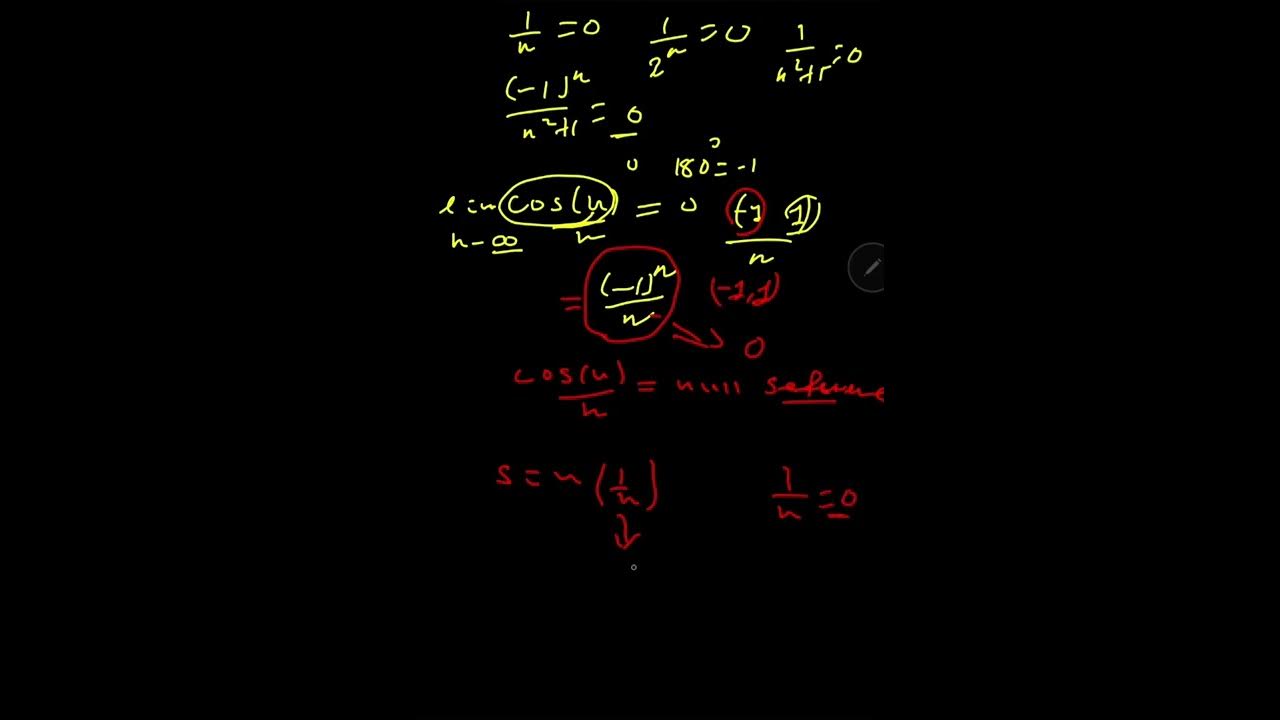 1/n = 0 1/2^n = 0 1/(n²+1) = 0
(-1)^n/(n²+1) = 0
0 180° = -1
lim n-∞ cos(n)/n = 0 (-1 1)/n
= (-1)^n/n (-1,1)
0
cos(n)/n = null
s = n (1/n) 1/n = 0